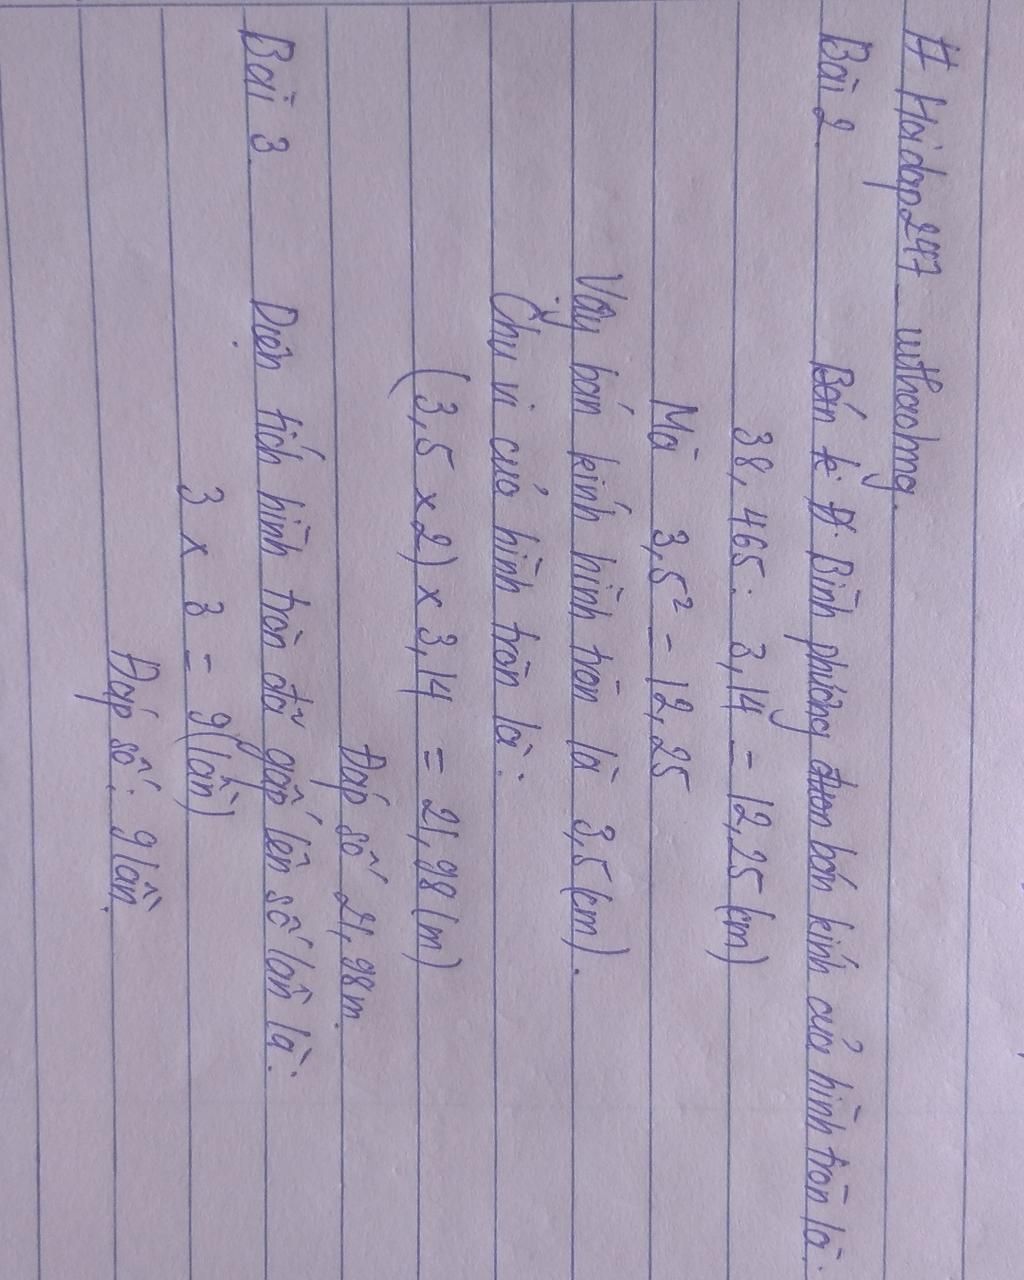 # Hoidap247_withaohng.
Bài 2. Bình phương bán kính của hình tròn là:
38,465 : 3,14 = 12,25 (cm)
Mà 3,5² = 12,25
Vậy bán kính hình tròn là 3,5 (cm).
Chu vi của hình tròn là:
(3,5 x 2) x 3,14 = 21,98 (m)
Đáp số 21,98m.
Bài 3. Diện tích hình tròn đã gấp lên số lần là:
3 x 3 = 9 (lần)
Đáp số: 9 lần.